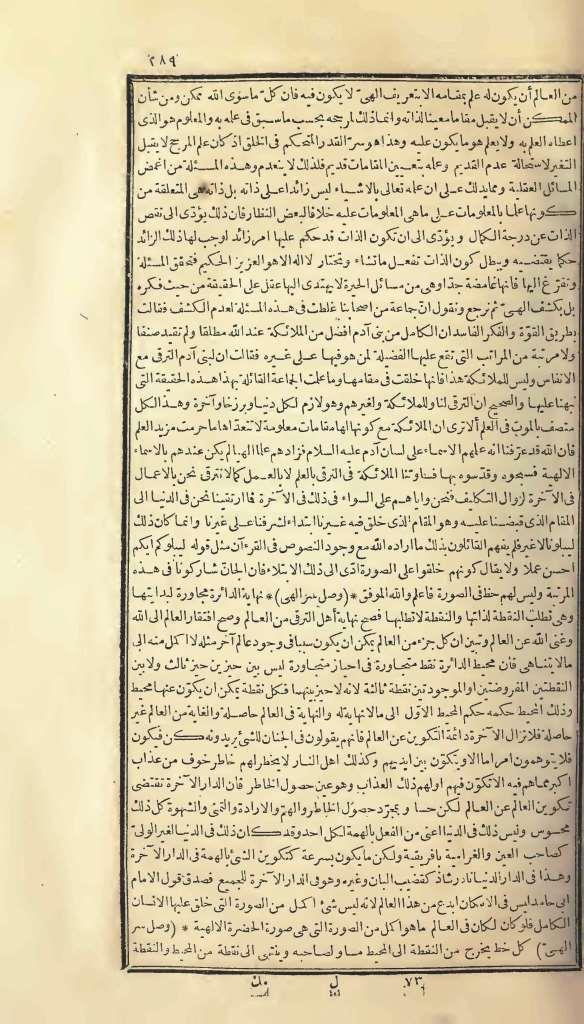 ٢٨٩
من العالم أن يكون له علم بمقامه الا بتعريف الهىّ لا يكون فيه فان كلّ ما سوى الله ممكن ومن شأن
الممكن أن لا يقبل مقاما معينا لذاته وانما ذلك لمرجحه بحسب ما سبق فى علمه به والمعلوم هو الذى
اعطاه العلم به ولا يعلم هو ما يكون عليه وهذا هو سرّ القدر المتحكم فى الخلق اذ كان علم المرجح لا يقبل
التغير لاستحالة عدم القديم وعلمه بتعيين المقامات قديم فلذلك لا ينعدم وهذه المسئلة من اغمض
المسائل العقلية ومما يدلك على ان علمه تعالى بالاشياء ليس زائدا على ذاته بل ذاته هى المتعلقة من
كونها علما بالمعلومات على ما هى المعلومات عليه خلافا لبعض النظار فان ذلك يؤدّى الى نقص
الذات عن درجة الكمال ويؤدّى الى ان تكون الذات قد حكم عليها امر زائد اوجب لها ذلك الزائد
حكما يقتضيه ويبطل كون الذات تفعل ما تشاء وتختار لا اله الا هو العزيز الحكيم فتحقق المسئلة
وتفرّغ اليها فانها غامضة جدّا وهى من مسائل الحيرة لا يهتدى اليها عقل على الحقيقة من حيث فكره
بل بكشف الهىّ ثم نرجع ونقول انّ جماعة من اصحابنا غلطت فى هذه المسئلة لعدم الكشف فقالت
بطريق القوّة والفكر الفاسد ان الكامل من بنى آدم افضل من الملائكة عند الله مطلقا ولم تقيد صنفا
ولا مرتبة من المراتب التى تقع عليها الفضيلة لمن هو فيها على غيره فقالت ان لبنى آدم الترقى مع
الانفاس وليس للملائكة هذا فانها خلقت فى مقامها وما علمت الجماعة القائلة بهذا هذه الحقيقة التى
نبهنا عليها والصحيح ان الترقى لنا وللملائكة ولغيرهم وهو لازم لكل دنيا وبرزخا وآخرة وهذا لكل
متصف بالموت فى العلم ألا ترى ان الملائكة مع كونها لها مقامات معلومة لا تتعدّاها ما حرمت مزيد العلم
فان الله قد عرّفنا انه علمهم الاسماء على لسان آدم عليه السلام فزادهم علما الهيا لم يكن عندهم بالاسماء
الالهية فسبحوه وقدّسوه بها فساوتنا الملائكة فى الترقى بالعلم لا بالعمل كما لا نترقى نحن بالاعمال
فى الآخرة لزوال التكليف فنحن واياهم على السواء فى ذلك فى الآخرة فما ارتقينا نحن فى الدنيا الى
المقام الذى قبضنا عليه وهو المقام الذى خلق فيه غيرنا ابتداء لشرفنا على غيرنا وانما كان ذلك
ليبلونا لا غير فلم يفهم القائلون بذلك ما اراده الله مع وجود النصوص فى القرءآن مثل قوله ليبلوكم ايكم
احسن عملا ولا يقال كونهم خلقوا على الصورة ادّى الى ذلك الابتلاء فان الجانّ شاركونا فى هذه
المرتبة وليس لهم حظ فى الصورة فاعلم والله الموفق * (وصل سرّ الهى) * نهاية الدائرة مجاورة لبدايتها
وهى تطلب النقطة لذاتها والنقطة لا تطلبها فصح نهاية أهل الترقى من العالم وصح افتقار العالم الى الله
وغنى الله عن العالم وتبين ان كل جزء من العالم يمكن ان يكون سببا فى وجود عالم آخر مثله لا اكمل منه الى
ما لا يتناهى فان محيط الدائرة نقط متجاورة فى احياز متجاورة ليس بين حيزين حيز ثالث ولا بين
النقطتين المفروضتين او الموجودتين نقطة ثالثة لانه لا حيز بينهما فكل نقطة يمكن ان يكون عنها محيط
وذلك المحيط حكمه حكم المحيط الاوّل الى ما لا نهاية له والنهاية فى العالم حاصلة والغاية من العالم غير
حاصلة فلا تزال الآخرة دائمة التكوين عن العالم فانهم يقولون فى الجنان للشئ يريدونه كن فيكون
فلا يتوهمون امرا ما الا ويتكوّن بين ايديهم وكذلك اهل النار لا يخطر لهم خاطر خوف من عذاب
اكبر مما هم فيه الا تكوّن فيهم اولهم ذلك العذاب وهو عين حصول الخاطر فان الدار الآخرة تقتضى
تكوين العالم عن العالم لكن حسا وبمجرّد حصول الخاطر والهمّ والارادة والتمنى والشهوة كل ذلك
محسوس وليس ذلك فى الدنيا اعنى من الفعل بالهمة لكل احد وقد كان ذلك فى الدنيا لغير الولىّ
كصاحب العين والغرانية بافريقية ولكن ما يكون بسرعة كتكوين الشئ بالهمة فى الدار الآخرة
وهذا فى الدار الدنيا نادر شاذ كقضيب البان وغيره وهو فى الدار الآخرة للجميع فصدق قول الامام
ابى حامد ليس فى الامكان ابدع من هذا العالم لانه ليس شئ اكمل من الصورة التى خلق عليها الانسان
الكامل فلو كان لكان فى العالم ما هو اكمل من الصورة التى هى صورة الحضرة الالهية * (وصل سر
الهىّ) كل خط يخرج من النقطة الى المحيط مساو لصاحبه وينتهى الى نقطة من المحيط والنقطة
٧٣ ل